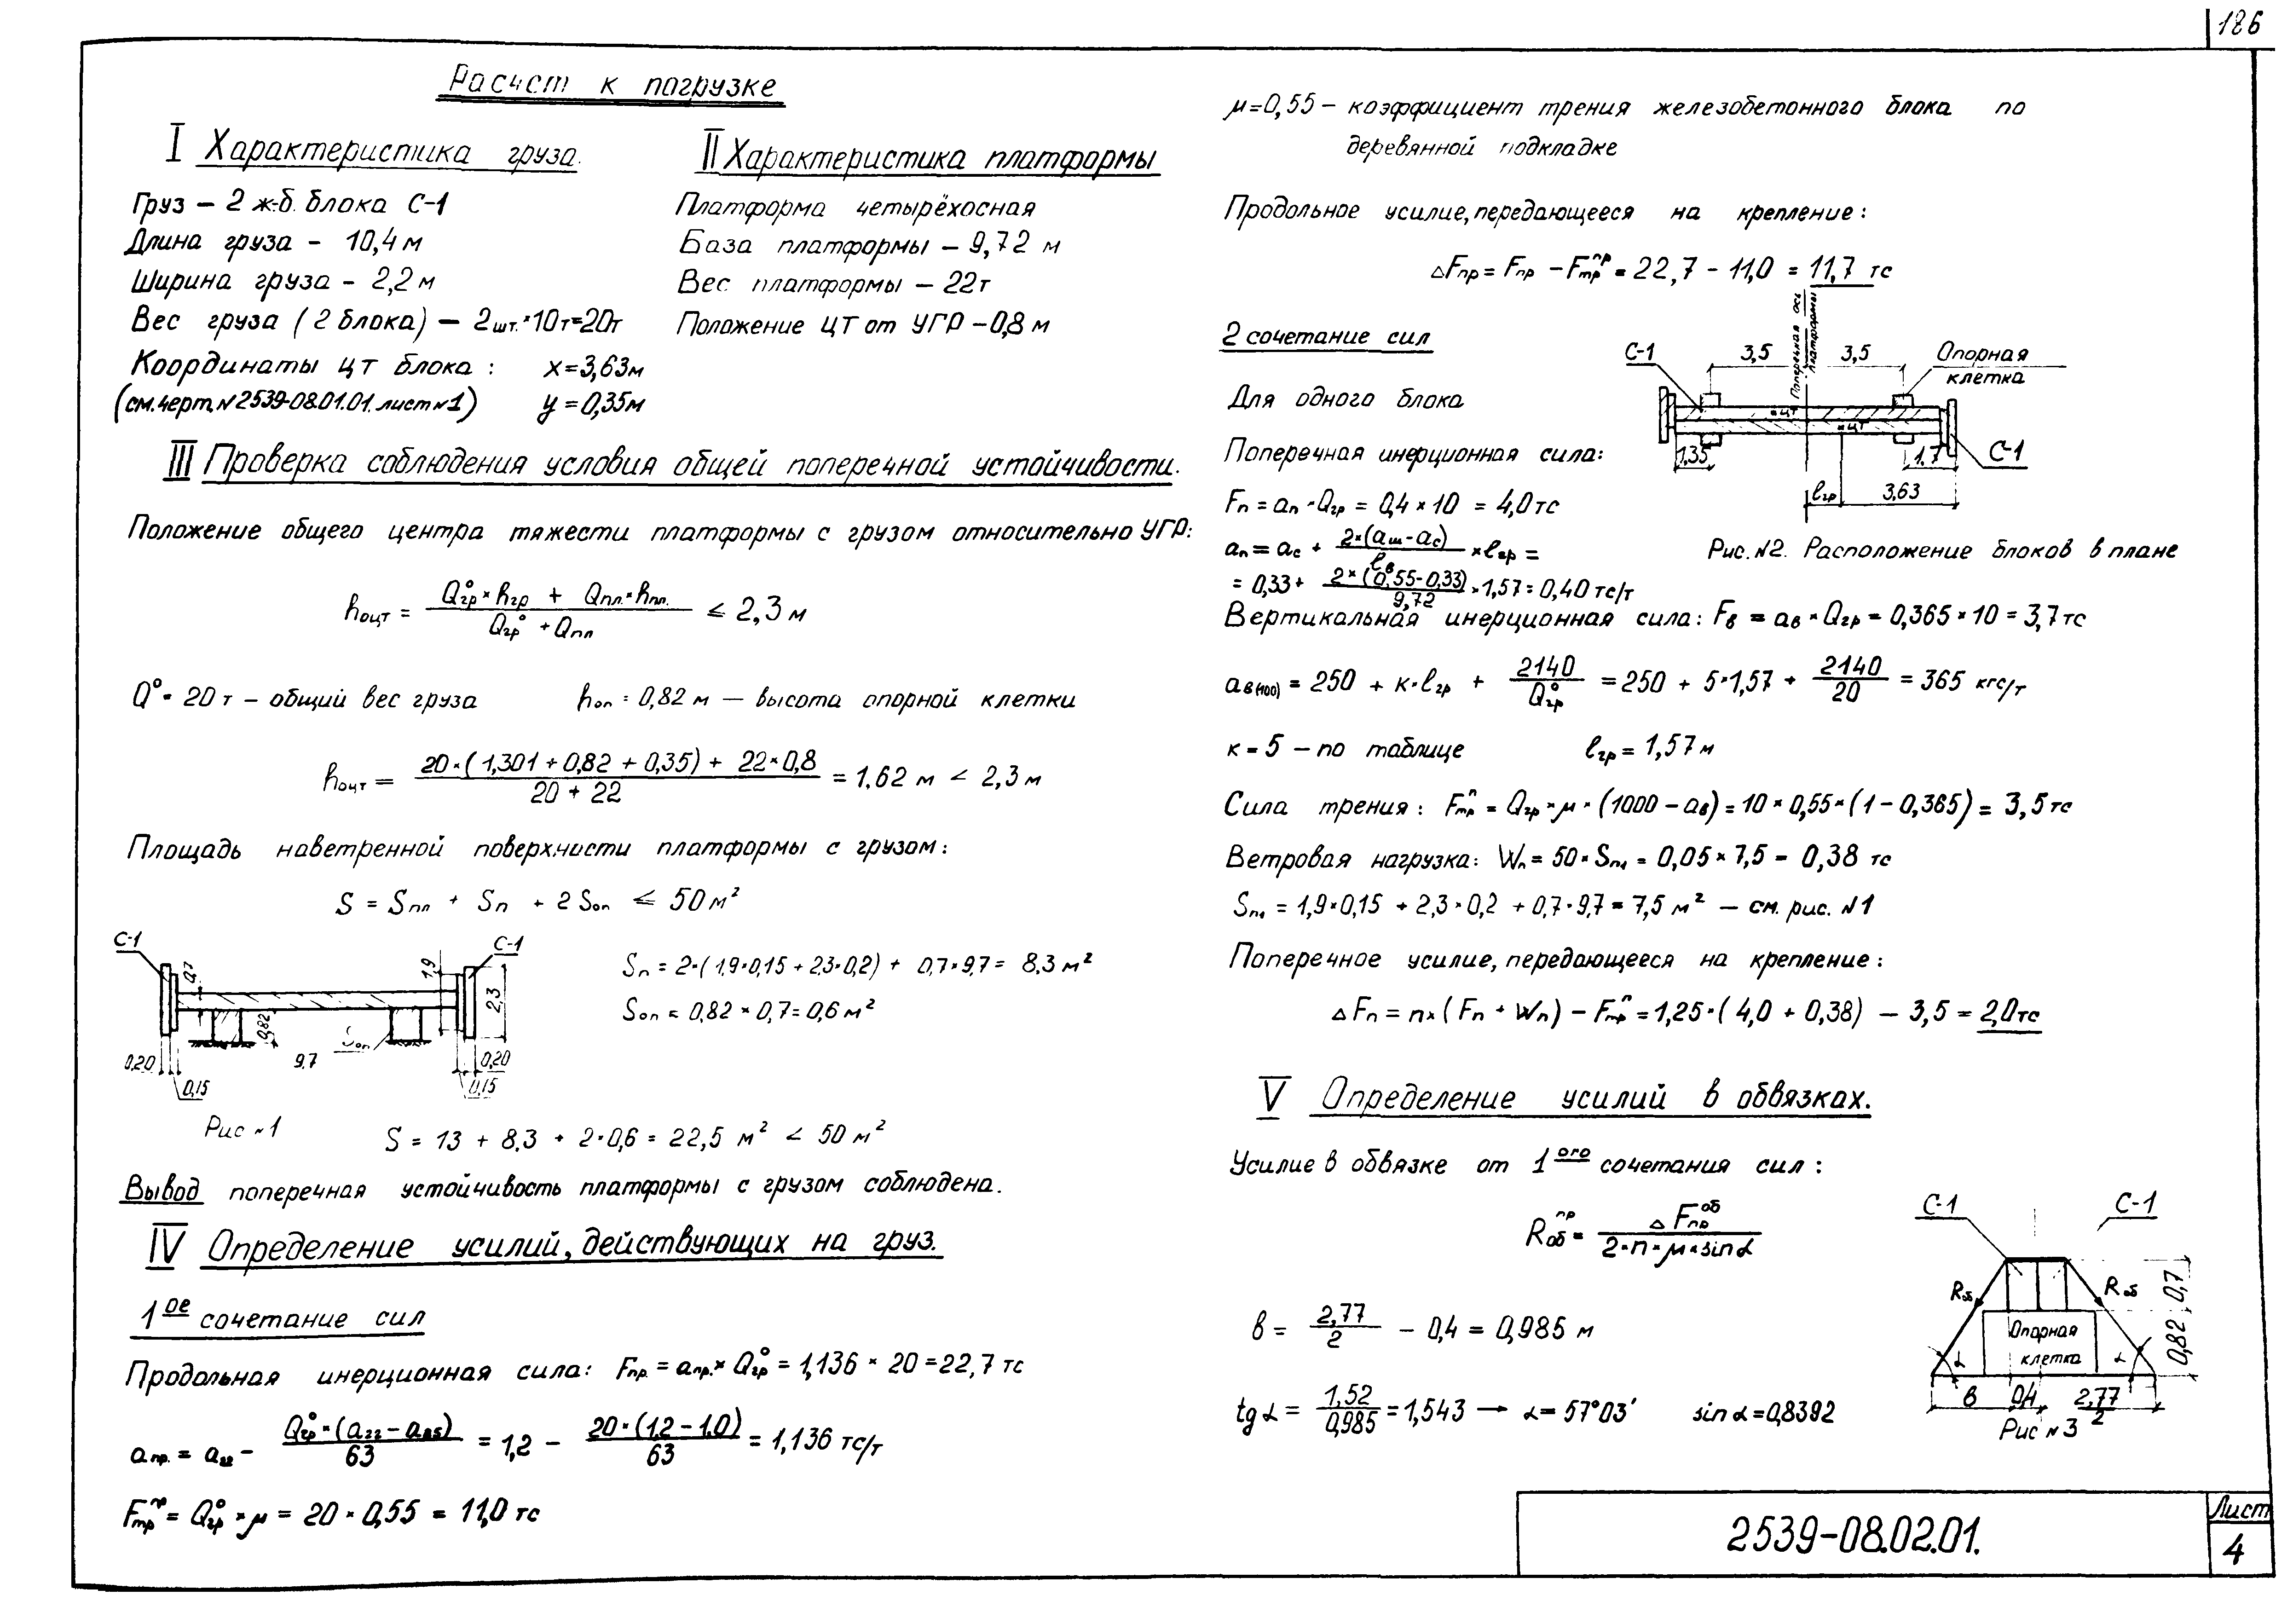 186
Расчет к погрузке
I Характеристика груза.
Груз – 2 ж.-б. блока С-1
Длина груза – 10,4 м
Ширина груза – 2,2 м
Вес груза (2 блока) – 2шт.×10т=20т
Координаты ЦТ блока : x=3,63м
(см.черт.№2539-08.01.01.лист№1) y=0,35м
II Характеристика платформы
Платформа четырёхосная
База платформы – 9,72 м
Вес платформы – 22т
Положение ЦТ от УГР – 0,8 м
III Проверка соблюдения условия общей поперечной устойчивости.
Положение общего центра тяжести платформы с грузом относительно УГР:
hоцт = (Q°гр × hгр + Qпл. × hпл.) / (Q°гр + Qпл) ≤ 2,3 м
Q° = 20 т – общий вес груза hоп = 0,82 м — высота опорной клетки
hоцт = (20×(1,301 + 0,82 + 0,35) + 22×0,8) / (20 + 22) = 1,62 м < 2,3 м
Площадь наветренной поверхности платформы с грузом:
S = Sпл + Sп + 2Sоп ≤ 50 м²
С-1
С-1
0,7
1,9
2,3
0,82
Sоп
0,20
0,15
9.7
0,20
0,15
Рис №1
Sп = 2×(1,9×0,15 + 2,3×0,2) + 0,7×9,7 = 8,3 м²
Sоп = 0,82 × 0,7 = 0,6 м²
S = 13 + 8,3 + 2×0,6 = 22,5 м² < 50 м²
Вывод поперечная устойчивость платформы с грузом соблюдена.
IV Определение усилий, действующих на груз.
1ое сочетание сил
Продольная инерционная сила: Fпр. = aпр. × Q°гр = 1,136 × 20 = 22,7 тс
aпр. = a22 − Q°гр × (a22 − a85) / 63 = 1,2 − 20×(1,2 − 1,0) / 63 = 1,136 тс/т
Fтрпр = Q°гр × μ = 20 × 0,55 = 11,0 тс
μ=0,55 – коэффициент трения железобетонного блока по
деревянной подкладке
Продольное усилие, передающееся на крепление:
ΔFпр = Fпр − Fтрпр = 22,7 − 11,0 = 11,7 тс
2 сочетание сил
Для одного блока
Поперечная инерционная сила:
Fп = aп × Qгр = 0,4 × 10 = 4,0 тс
aп = aс + 2×(aш − aс) / lв × lгр =
= 0,33 + 2×(0,55 − 0,33) / 9,72 × 1,57 = 0,40 тс/т
Поперечная ось
платформы
С-1
3,5
3,5
Опорная
клетка
ЦТ
ЦТ
1,35
1,7
С-1
lгр
3,63
Рис. №2. Расположение блоков в плане
Вертикальная инерционная сила: Fв = aв × Qгр = 0,365 × 10 = 3,7 тс
aв(100) = 250 + к×lгр + 2140 / Q°гр = 250 + 5×1,57 + 2140 / 20 = 365 кгс/т
к = 5 – по таблице lгр = 1,57м
Сила трения: Fтрп = Qгр × μ × (1000 − aв) = 10 × 0,55 × (1 − 0,365) = 3,5 тс
Ветровая нагрузка: Wп = 50×Sп1 = 0,05 × 7,5 = 0,38 тс
Sп1 = 1,9×0,15 + 2,3×0,2 + 0,7×9,7 = 7,5 м² — см. рис. №1
Поперечное усилие, передающееся на крепление:
ΔFп = n×(Fп + Wп) − Fтрп = 1,25×(4,0 + 0,38) − 3,5 = 2,0тс
V Определение усилий в обвязках.
Усилие в обвязке от 1ого сочетания сил:
Rобпр = ΔFпроб / (2×n×μ×sinα)
в = 2,77 / 2 − 0,4 = 0,985 м
tgα = 1,52 / 0,985 = 1,543 → α = 57°03′ sinα=0,8392
С-1
С-1
Rоб
Rоб
0,7
0,82
Опорная
клетка
α
α
в
0,4
2,77 / 2
Рис №3
2539-08.02.01.
Лист
4